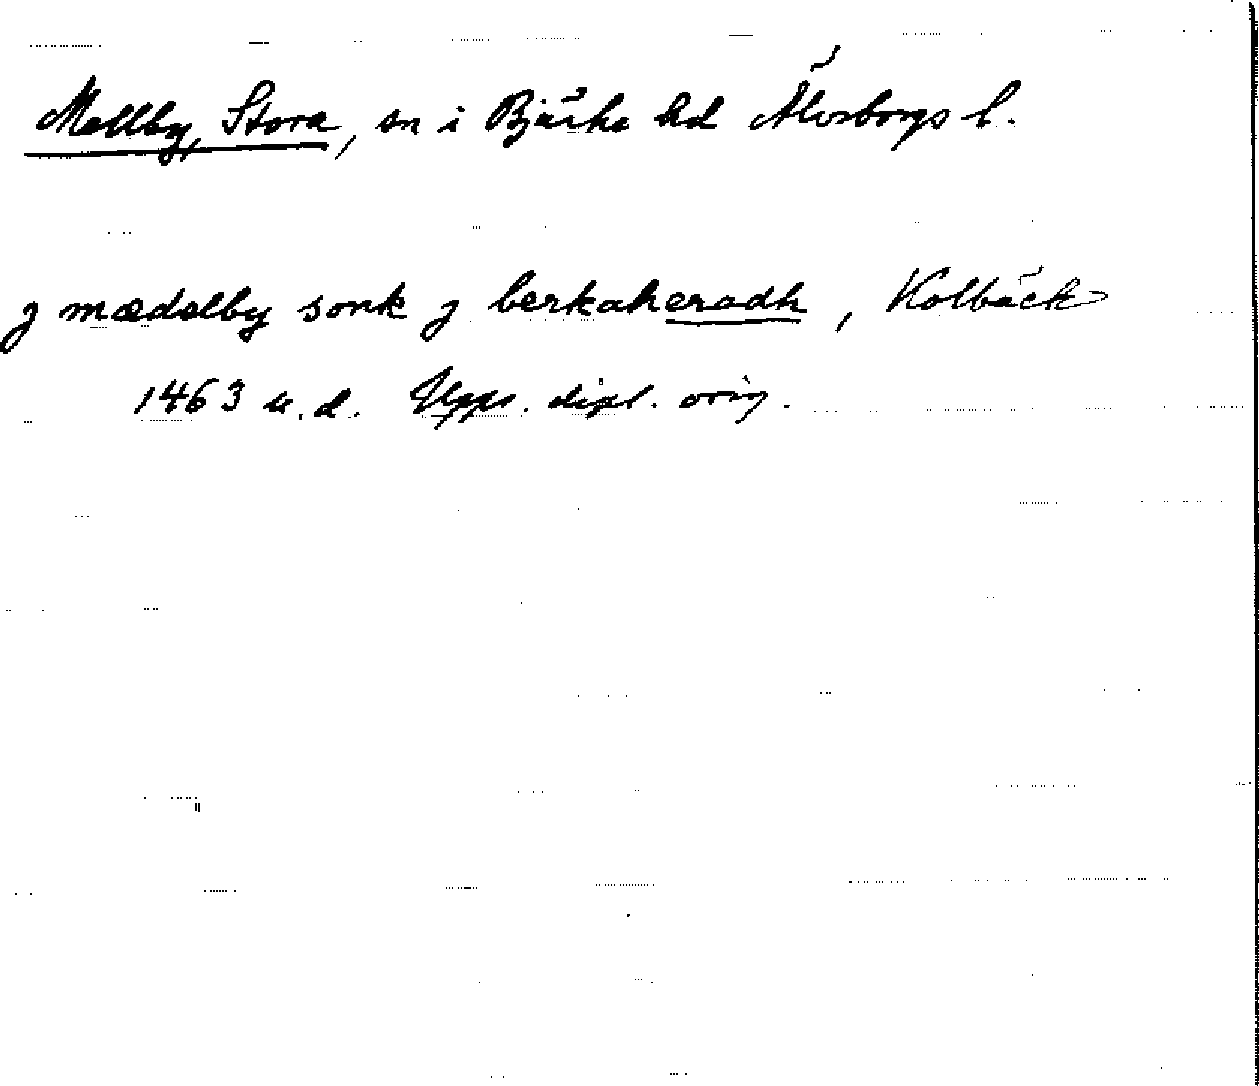 Mellby, Stora, sn i Bjärke hd Älvsborgs l.
j mædalby sonk j berkaheradh, Kolbäck
1463 u.d. Upps. dipl. orig.